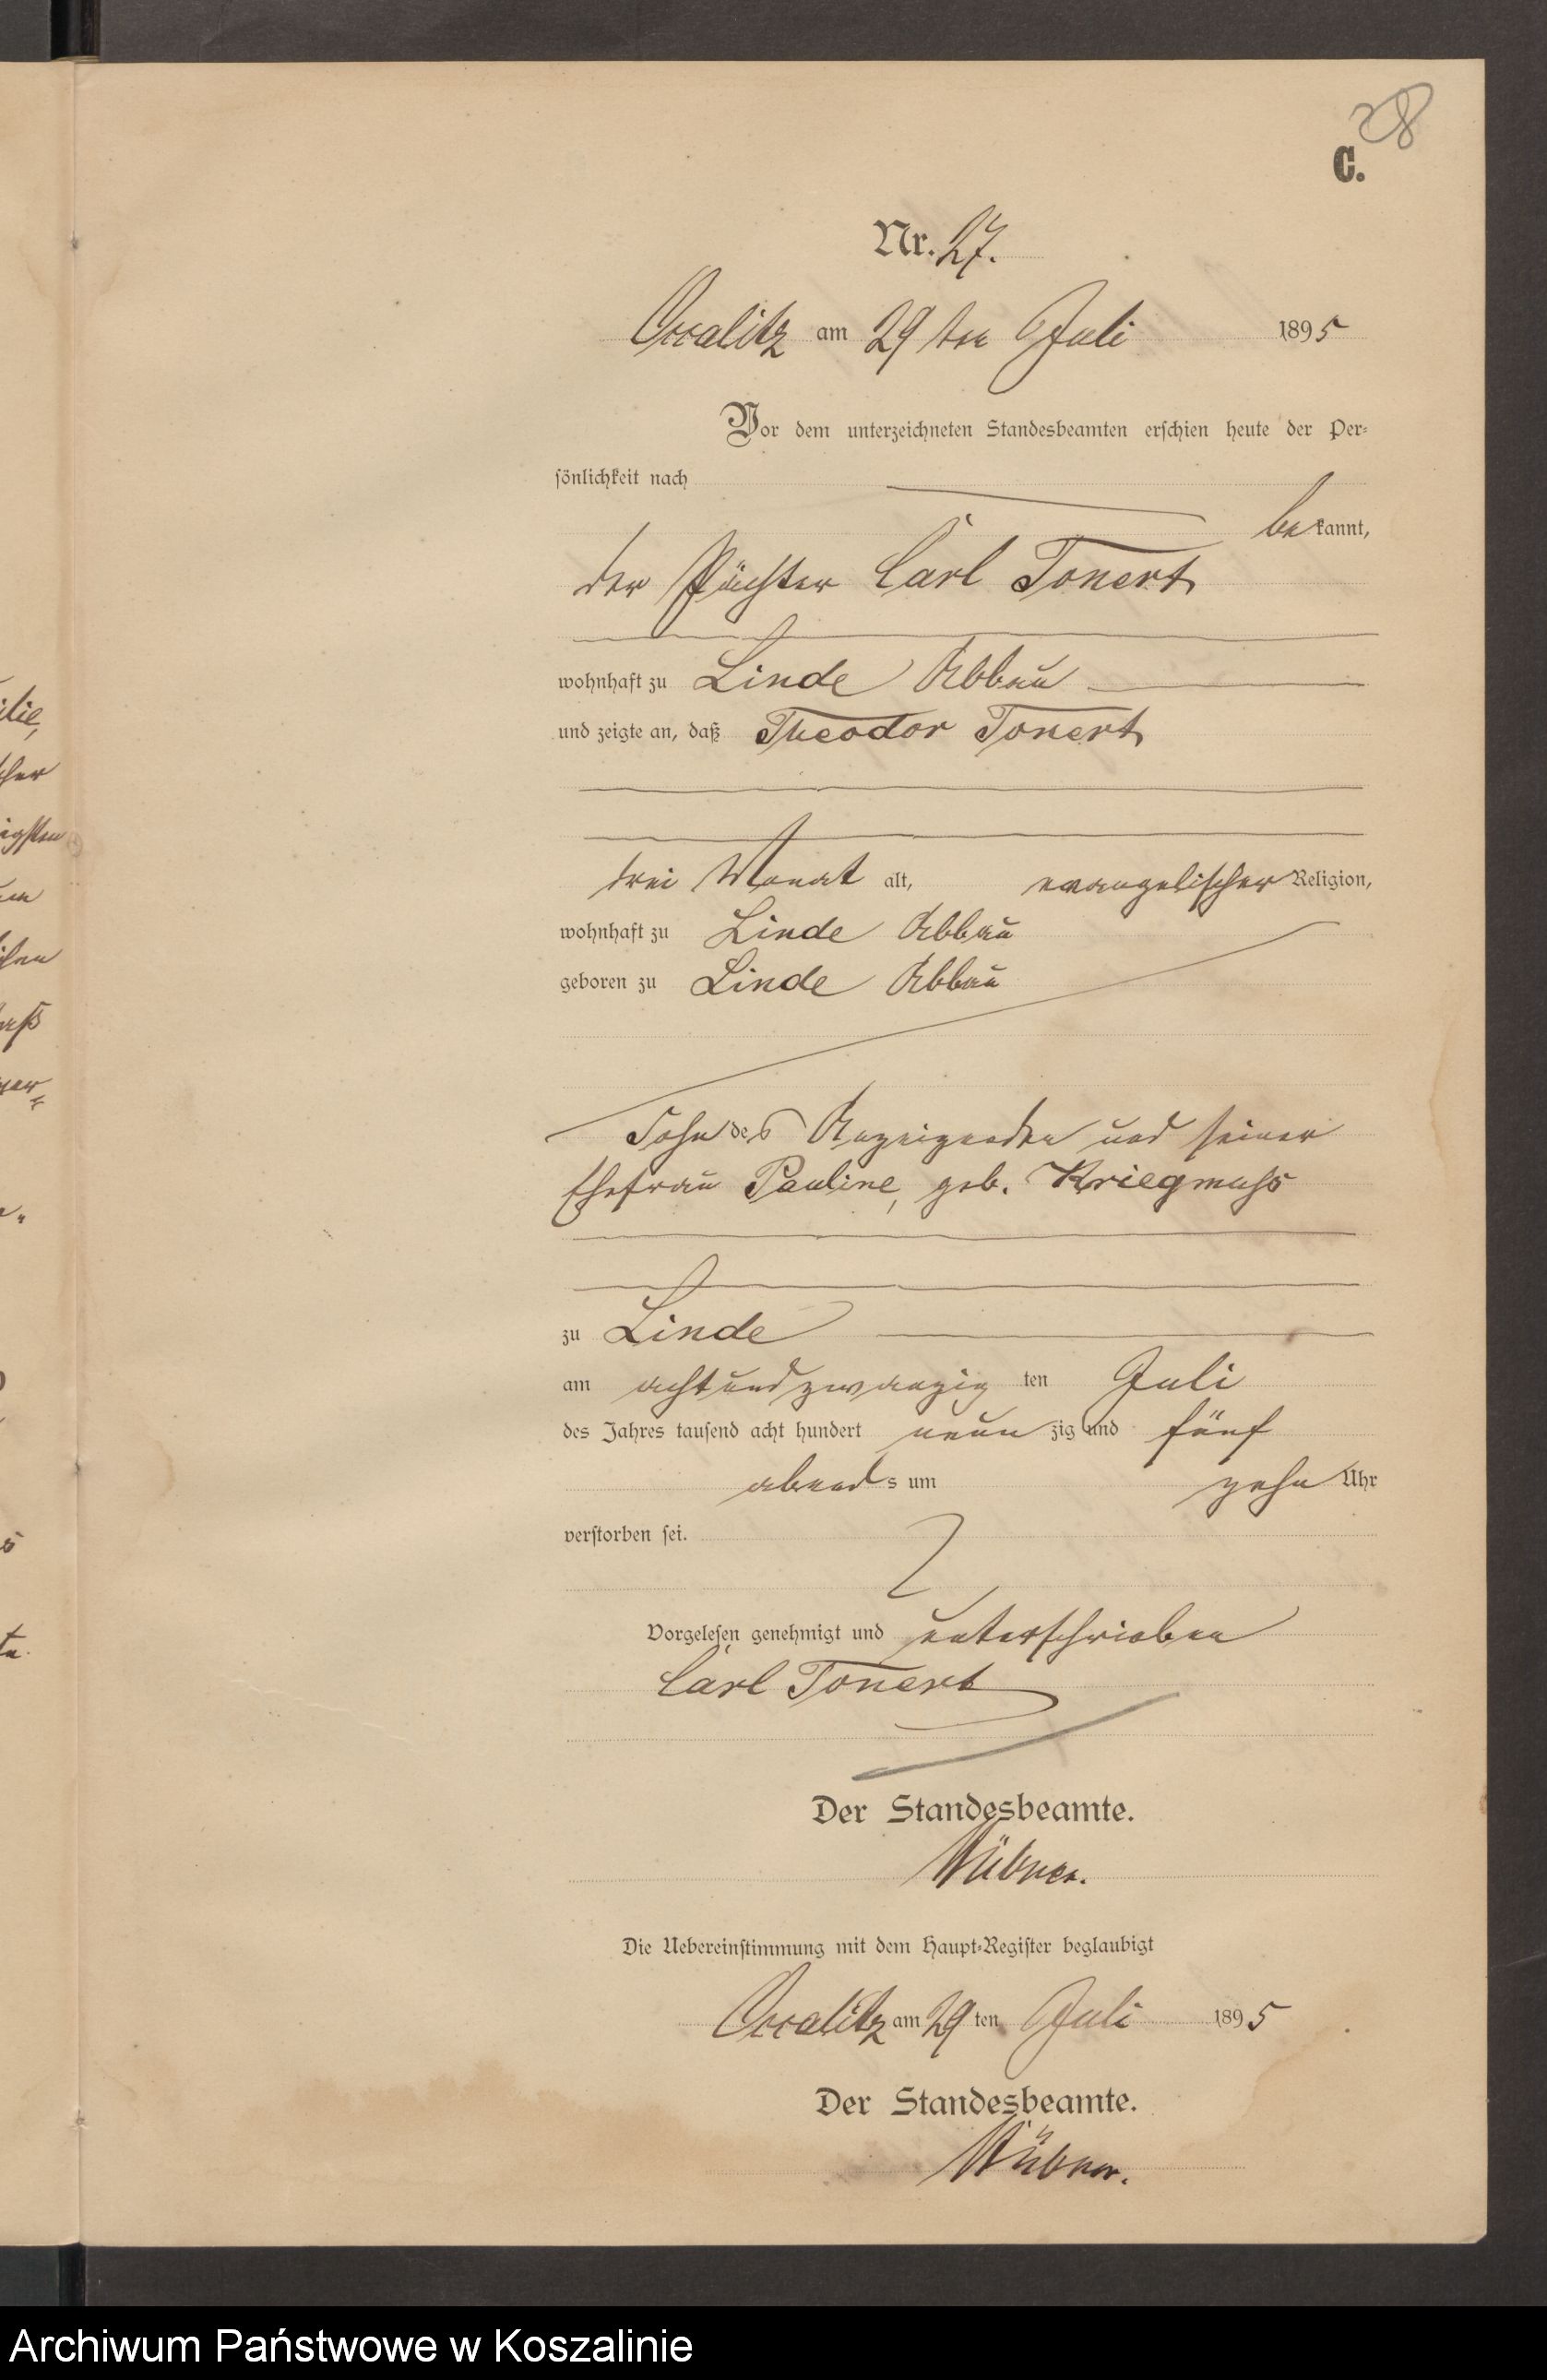 28
C.
Nr. 27.
Occalitz am 29 ten Juli 1895
Vor dem unterzeichneten Standesbeamten erschien heute der Per-
sönlichkeit nach
bekannt,
der Pächter Carl Tonert
wohnhaft zu Linde Abbau
und zeigte an, daß Theodor Tonert
drei Monat alt, evangelischer Religion,
wohnhaft zu Linde Abbau
geboren zu Linde Abbau
Sohn des Anzeigenden und seiner
Ehefrau Pauline, geb. Kriegmuß
zu Linde
am achtundzwanzig ten Juli
des Jahres tausend acht hundert neunzig und fünf
abends um zehn Uhr
verstorben sei.
Vorgelesen genehmigt und unterschrieben
Carl Tonert
Der Standesbeamte.
Die Uebereinstimmung mit dem Haupt-Register beglaubigt
Occalitz am 29 ten Juli 1895
Der Standesbeamte.
Archiwum Państwowe w Koszalinie